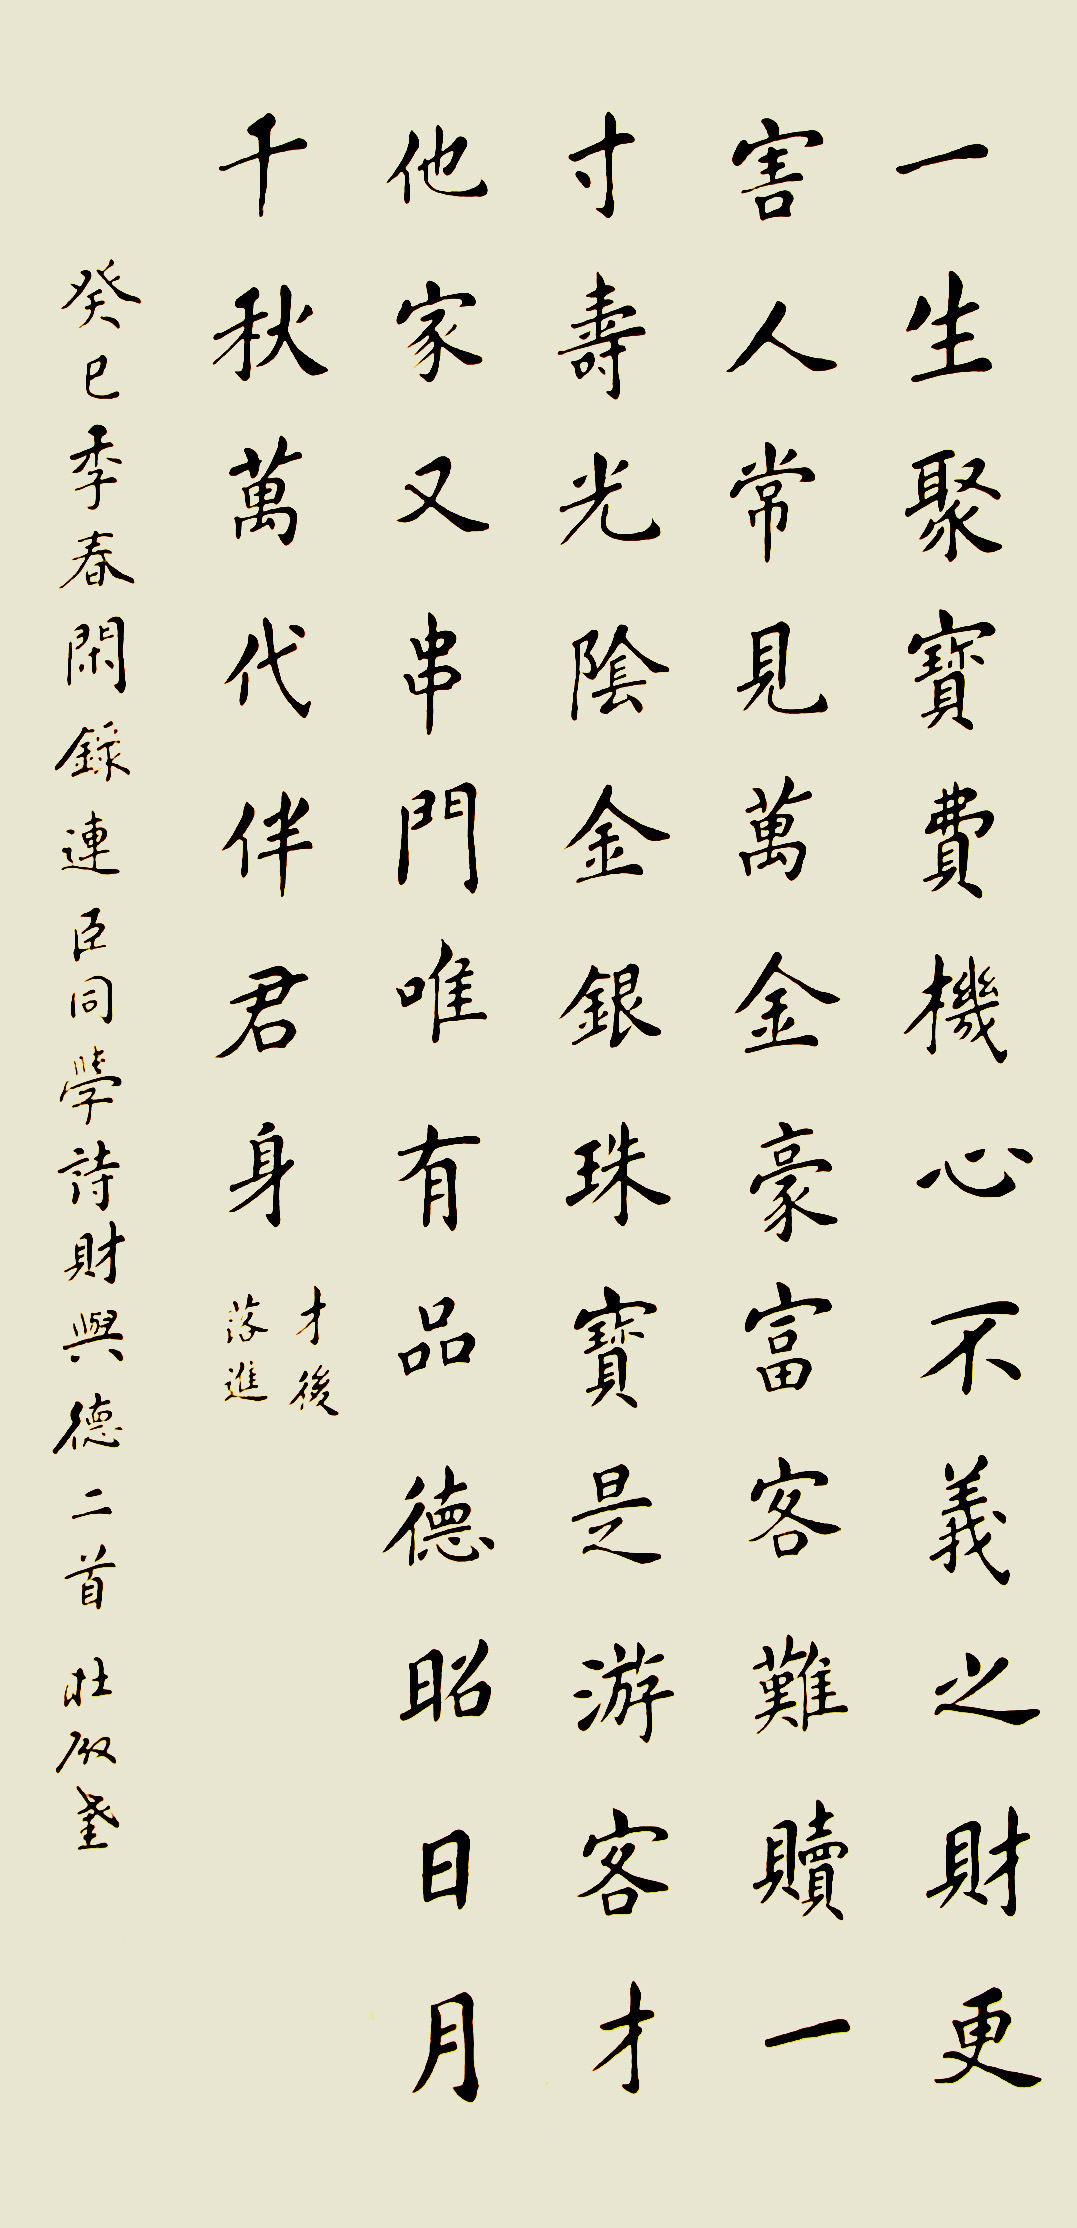 一生聚寶費機心不義之財更
害人常見萬金豪富客難贖一
寸壽光陰金銀珠寶是游客才
他家又串門唯有品德昭日月
千秋萬代伴君身
才後
落進
癸巳季春閑錄連臣同學詩財與德二首